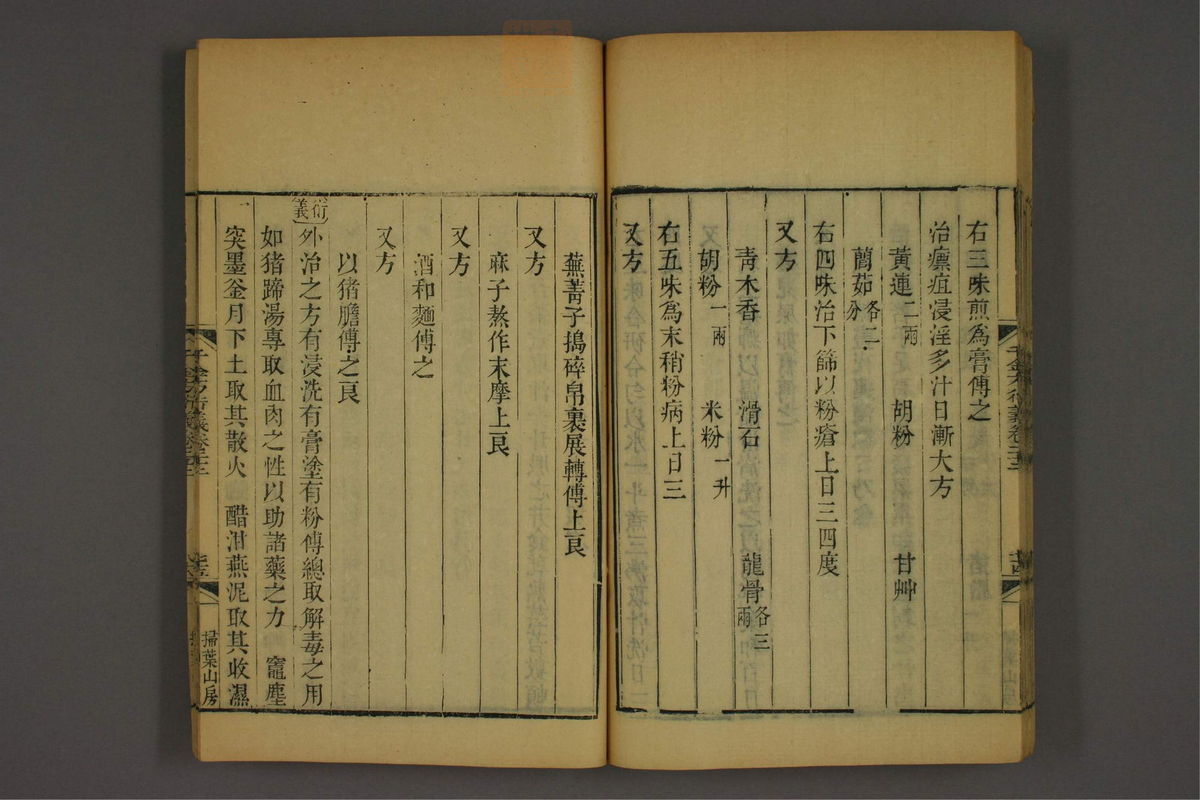 右三味煎爲膏傅之
治瘭疽浸淫多汁日漸大方
黃連二兩 胡粉 甘艸
䕡茹各二分
右四味治下篩以粉瘡上日三四度
又方
靑木香 滑石 龍骨各三兩
胡粉一兩 米粉一升
右五味爲末稍粉病上日三
又方
蕪菁子搗碎帛裹展轉傅上良
又方
麻子熬作末摩上良
又方
酒和麵傅之
又方
以猪膽傅之良
衍義
外治之方有浸洗有膏塗有粉傅總取解毒之用
如猪蹄湯專取血肉之性以助諸藥之力 竈塵
突墨釜月下土取其散火 醋泔燕泥取其收濕
千金方衍義卷二十二
掃葉山房